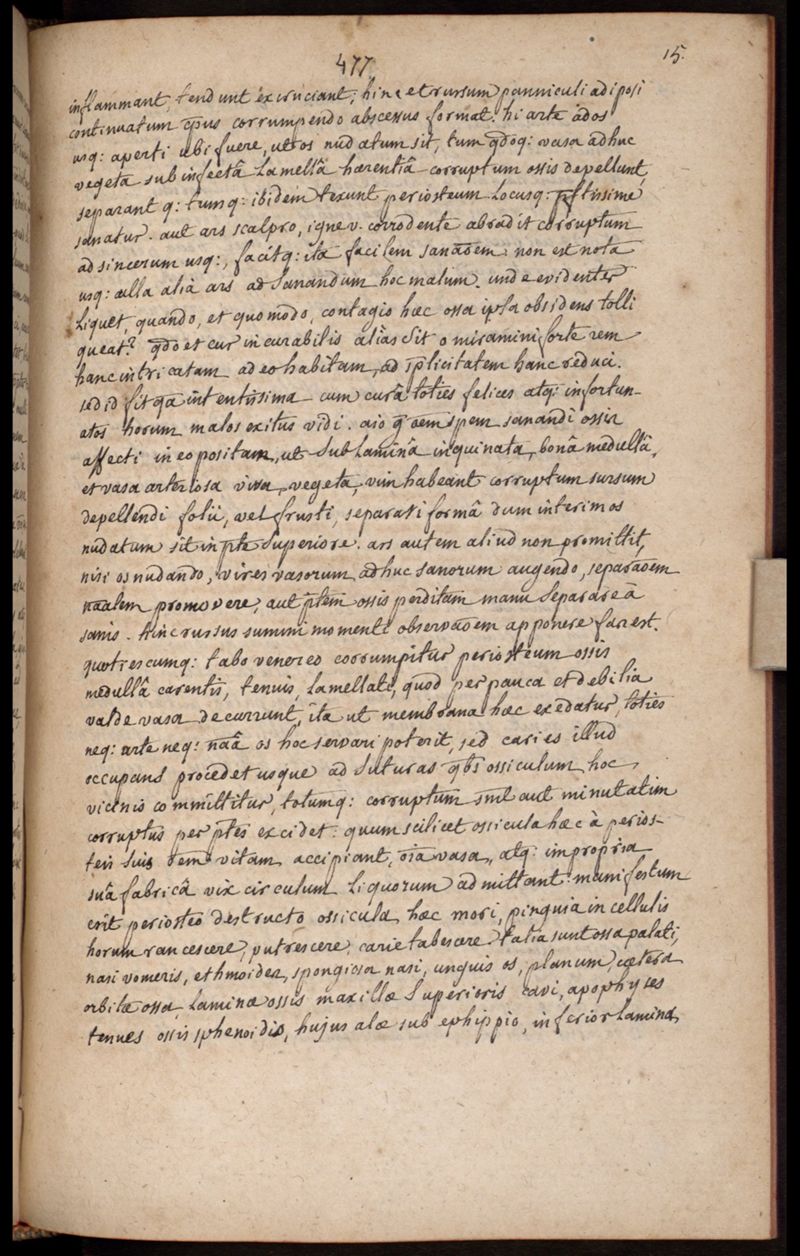 477
15.
inflammant, tendunt excruciant; hinc et rursum panniculi adiposi
continuatum opus corrumpendo abscessus format. hi arte ad os
usq: aperti ubi fuere, ut os nudatum sit, tum qdoq: vasa adhuc
vegeta sub infectâ Lamellâ hærentiâ corruptum ossis depellunt,
separant q: tumq: ibidem texunt periosteum Locusq:
sanatur. aut ars scalpro, igne v. corrodente abradit corruptum
ad sincerum usq:, facitq: ita facilem sanãoem. non est nota
usq: ulla alia ars ad Sanandum hoc malum. unde evidenter
Liquet, quando, et quo modo, contagio hæc ossa ipsa obsidens tolli
queat? qdo et cur incurabilis alias sit o miramini forte rem
hanc intricatam adeo habitam, ad simplicitatem hanc reduci.
sed id fit qa intentissima cum curâ toties felices atq: infortun-
atos horum malos exitus vidi. aio q̃ oem spem sanandi ossia
affecti in eo positam, ut sub Laminâ inquinata, bonâ medullâ,
et vasa arteriosa viva, vegeta, vim habeant corruptum sursum
depellendi folii, vel frusti, separati formâ dum interim os
nudatum sit in pte superiore. ars autem aliud non promittit,
nisi os nudando, vires vasorum adhuc sanorum augendo, separãoem
nãalem promovere, aut ptem ossis perditam manu separare à
sanis. hinc rursus summi momenti observãoem apponere fas est.
quotiescumq: tabo venereo corrumpitur periosteum ossis
medullâ carentis, tenuis, Lamellati, quod per pauca et debilia
valde vasa decurrunt, ita ut membrana hæc exedatur, toties
neq: arte neq: nãa os hoc servari poterit, sed caries illud
occupans procedet usque ad suturas qbs ossiculum hoc
vicinis committitur, totumq: corruptum sml aut minutatim
corruptus per ptes excidet: quum scilicet ossicula hæc à perios-
teis suis oem vitam accipiant, oia vasa, atq: impropria
suâ fabricâ vix circulum Liquorum admittant: manifestum
erit periosteo destructo ossicula hæc mori, pinguia in cellulis
horum rancescere, putrescere, carie tabescere. talia sunt ossa palati,
nasi vomeris, ethmoidea, spongiosa nasi, unguis os, planum, cætera
orbitæ ossa, Laminæ ossis maxillæ superioris cavi, apophyses
tenues ossis sphenoidis, hujus alæ sub ephippio, inferior Lamina